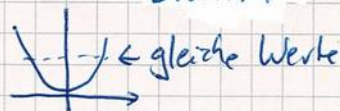 ← gleiche Werte